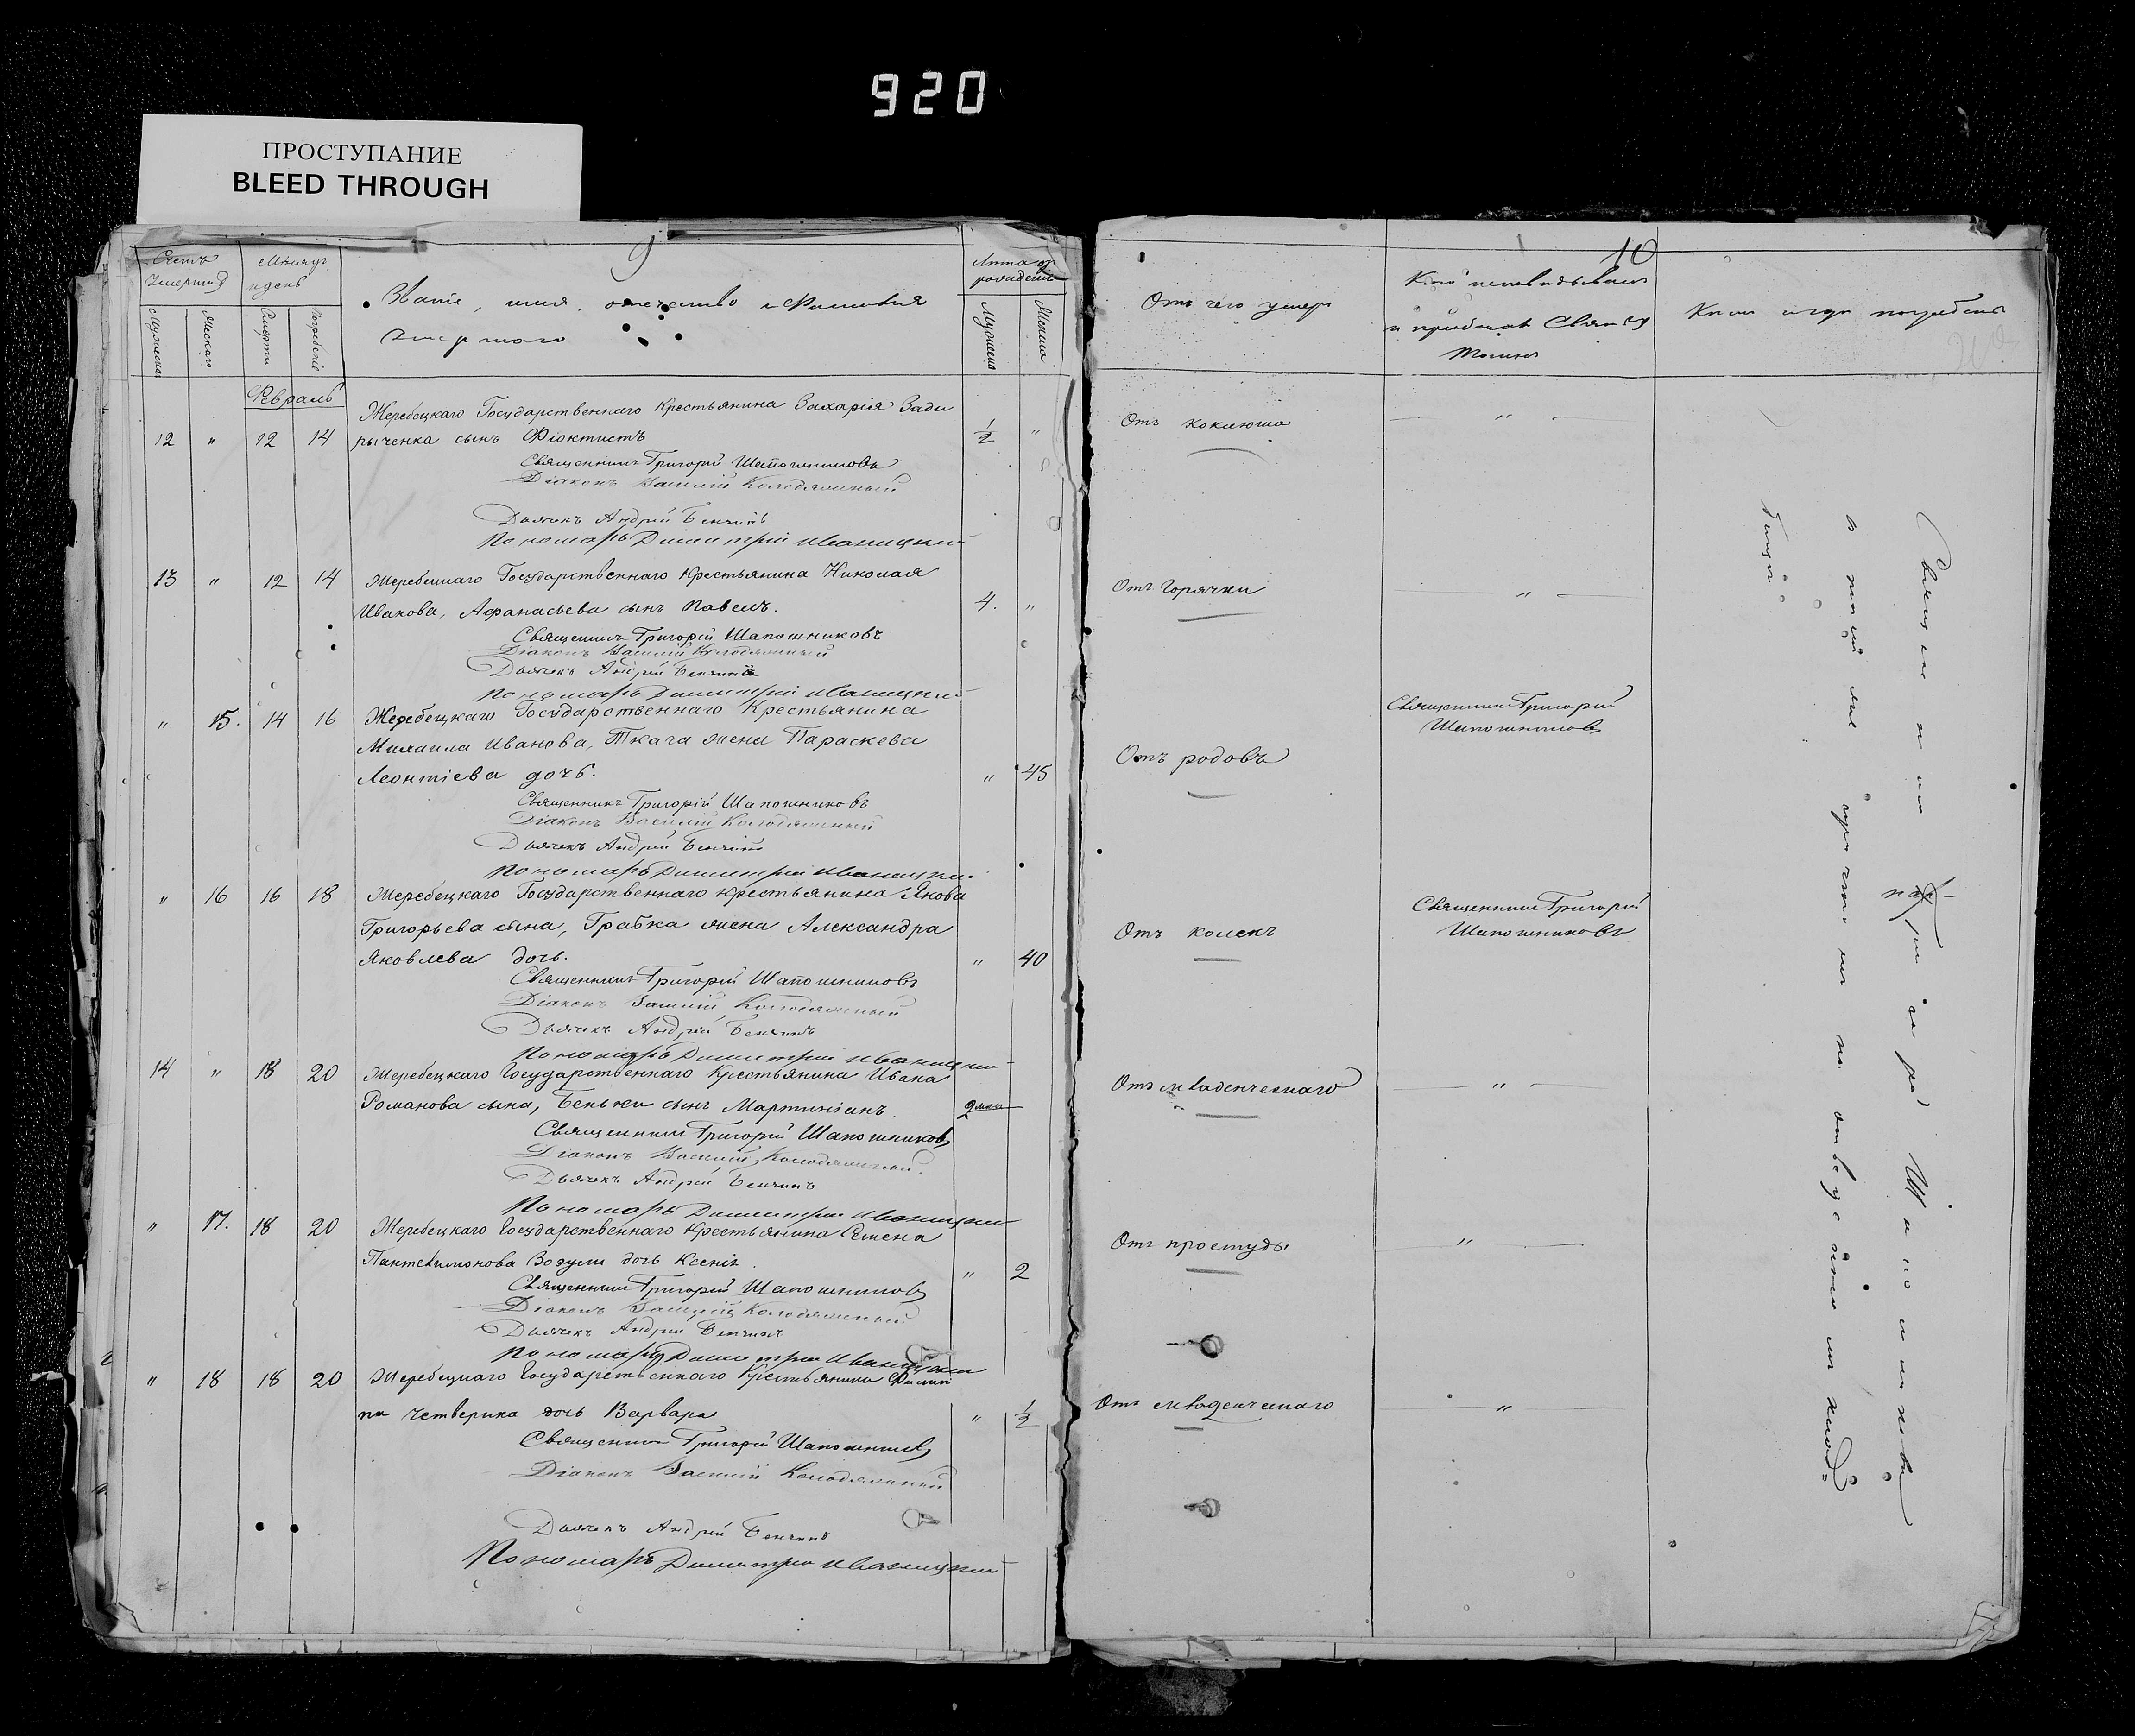 920
ПРОСТУПАНИЕ
BLEED THROUGH
9
Счетъ умершихъ
Мѣсяцъ и день
Званіе, имя, отчество и Фамилія
умершаго
Лѣта рожденія
Мужескаго
Женскаго
Смерти
Погребенія
Февраль
Жеребецкаго Государственнаго Крестьянина Захарія Зади
12 " 12 14 рыченка сынъ Ѳіоктистъ 1/2 "
Священникъ Григорій Шапошниковъ
Діаконъ Василій Колодяжный
Дьячекъ Андрей
Пономарь Димитрій Иваницкій
13 " 12 14 Жеребецкаго Государственнаго Крестьянина Николая
Иванова, Афанасьева сынъ Павелъ. 4. "
Священникъ Григорій Шапошниковъ
Діаконъ Василій Колодяжный
Дьячекъ Андрей
Пономарь Димитрій Иваницкій
" 15. 14 16 Жеребецкаго Государственнаго Крестьянина
Михаила Иванова, Ткача жена Параскева
Леонтіева дочь. " 45
Священникъ Григорій Шапошниковъ
Діаконъ Василій Колодяжный
Дьячекъ Андрей
Пономарь Димитрій Иваницкій
" 16 16 18 Жеребецкаго Государственнаго Крестьянина Якова
Григорьева сына, Грабка жена Александра
Яковлева дочь. " 40
Священникъ Григорій Шапошниковъ
Діаконъ Василій Колодяжный
Дьячекъ Андрей
Пономарь Димитрій Иваницкій
14 " 18 20 Жеребецкаго Государственнаго Крестьянина Ивана
Романова сына, Беньки сынъ Мартиніанъ. 2
Священникъ Григорій Шапошниковъ
Діаконъ Василій Колодяжный
Дьячекъ Андрей
Пономарь Димитрій Иваницкій
" 17. 18 20 Жеребецкаго Государственнаго Крестьянина Семена
Пантелимонова дочь Ксенія. " 2
Священникъ Григорій Шапошниковъ
Діаконъ Василій Колодяжный
Дьячекъ Андрей
Пономарь Димитрій Иваницкій
" 18 18 20 Жеребецкаго Государственнаго Крестьянина Филип
па Четверика дочь Варвара " 1/2
Священникъ Григорій Шапошниковъ
Діаконъ Василій Колодяжный
Дьячекъ Андрей
Пономарь Димитрій Иваницкій
10
Отъ чего умеръ
Кто исповѣдывалъ
и пріобщалъ Святыхъ
Таинъ
Кѣмъ и гдѣ погребены
Отъ коклюша "
Отъ горячки "
Отъ родовъ
Священникъ Григорій
Шапошниковъ
Отъ колекъ
Священникъ Григорій
Шапошниковъ
Отъ младенческаго "
Отъ простуды "
Отъ младенческаго "
Священникомъ Григоріемъ Шапошниковымъ